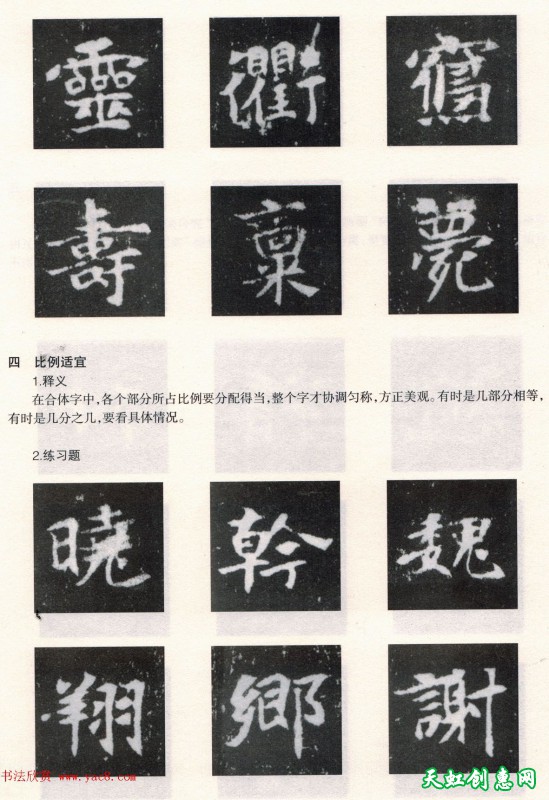 靈 衢
壽 稟 薨
四 比例适宜
1.释义
在合体字中,各个部分所占比例要分配得当,整个字才协调匀称,方正美观。有时是几部分相等,
有时是几分之几,要看具体情况。
2.练习题
曉 幹 魏
翔 鄉 謝
书法欣赏 www.yac8.com
天虹创惠网